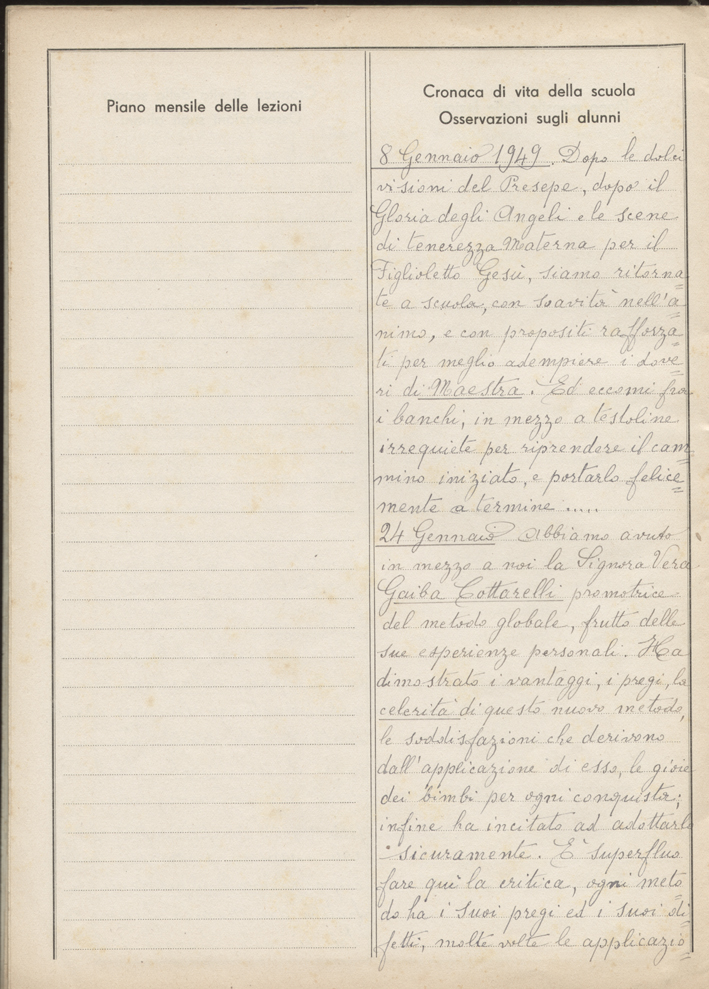 Piano mensile delle lezioni
Cronaca di vita della scuola
Osservazioni sugli alunni
8 Gennaio 1949. Dopo le dolci
visioni del Presepe, dopo il
Gloria degli Angeli e le scene
di tenerezza Materna per il
Figlioletto Gesù, siamo ritorna=
te a scuola, con soavità nell'a=
nimo, e con propositi rafforza=
ti per meglio adempiere i dove=
ri di Maestra. Ed eccomi fra
i banchi, in mezzo a testoline
irrequiete per riprendere il cam=
mino iniziato, e portarlo felice=
mente a termine .....
24 Gennaio Abbiamo avuto
in mezzo a noi la Signora Vera
Gaiba Cottarelli promotrice
del metodo globale, frutto delle
sue esperienze personali. Ha
dimostrato i vantaggi, i pregi, la
celerità di questo nuovo metodo,
le soddisfazioni che derivono
dall'applicazione di esso, le gioie
dei bimbi per ogni conquista;
infine ha incitato ad adottarlo
sicuramente. E' superfluo
fare quì la critica, ogni meto=
do ha i suoi pregi ed i suoi di=
fetti, molte volte le applicazio=